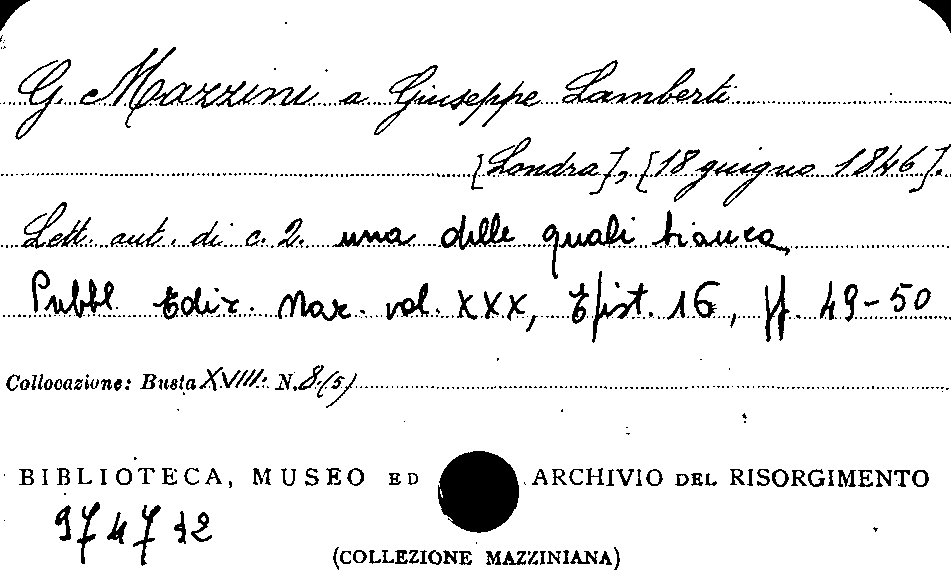 G. Mazzini a Giuseppe Lamberti
[Londra], [18 giugno 1846].
Lett. aut. di c. 2. una delle quali bianca,
Pubbl. Ediz. Naz. vol. XXX, Epist. 16, pp. 49-50
Collocazione: Busta XVIII. N. 8 (5)
BIBLIOTECA, MUSEO ED ARCHIVIO DEL RISORGIMENTO
974712
(COLLEZIONE MAZZINIANA)